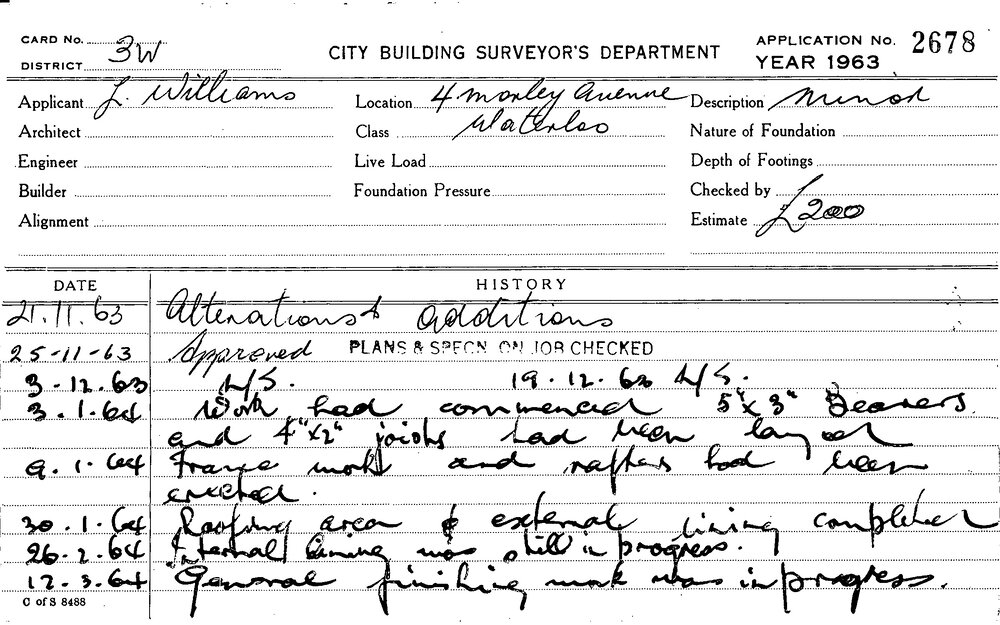 CARD No. 3W
DISTRICT
CITY BUILDING SURVEYOR'S DEPARTMENT
APPLICATION No. 2678
YEAR 1963
Applicant L. Williams
Location 4 Morley Avenue
Description Minor
Architect
Class Waterloo
Nature of Foundation
Engineer
Live Load
Depth of Footings
Builder
Foundation Pressure
Checked by
Alignment
Estimate £200
DATE
HISTORY
21.11.63 Alterations & additions
25-11-63 Approved PLANS & SPECN. ON JOB CHECKED
3.12.63 N/S. 19.12.63 N/S.
3.1.64 Work had commenced 5"x3" Bearers
and 4"x2" joists had been layed
9.1.64 Frame work and rafters had been
erected.
30.1.64 Roofing area & external lining completed
26.2.64 Internal lining was still in progress.
12.3.64 General finishing work was in progress.
C of S 8488